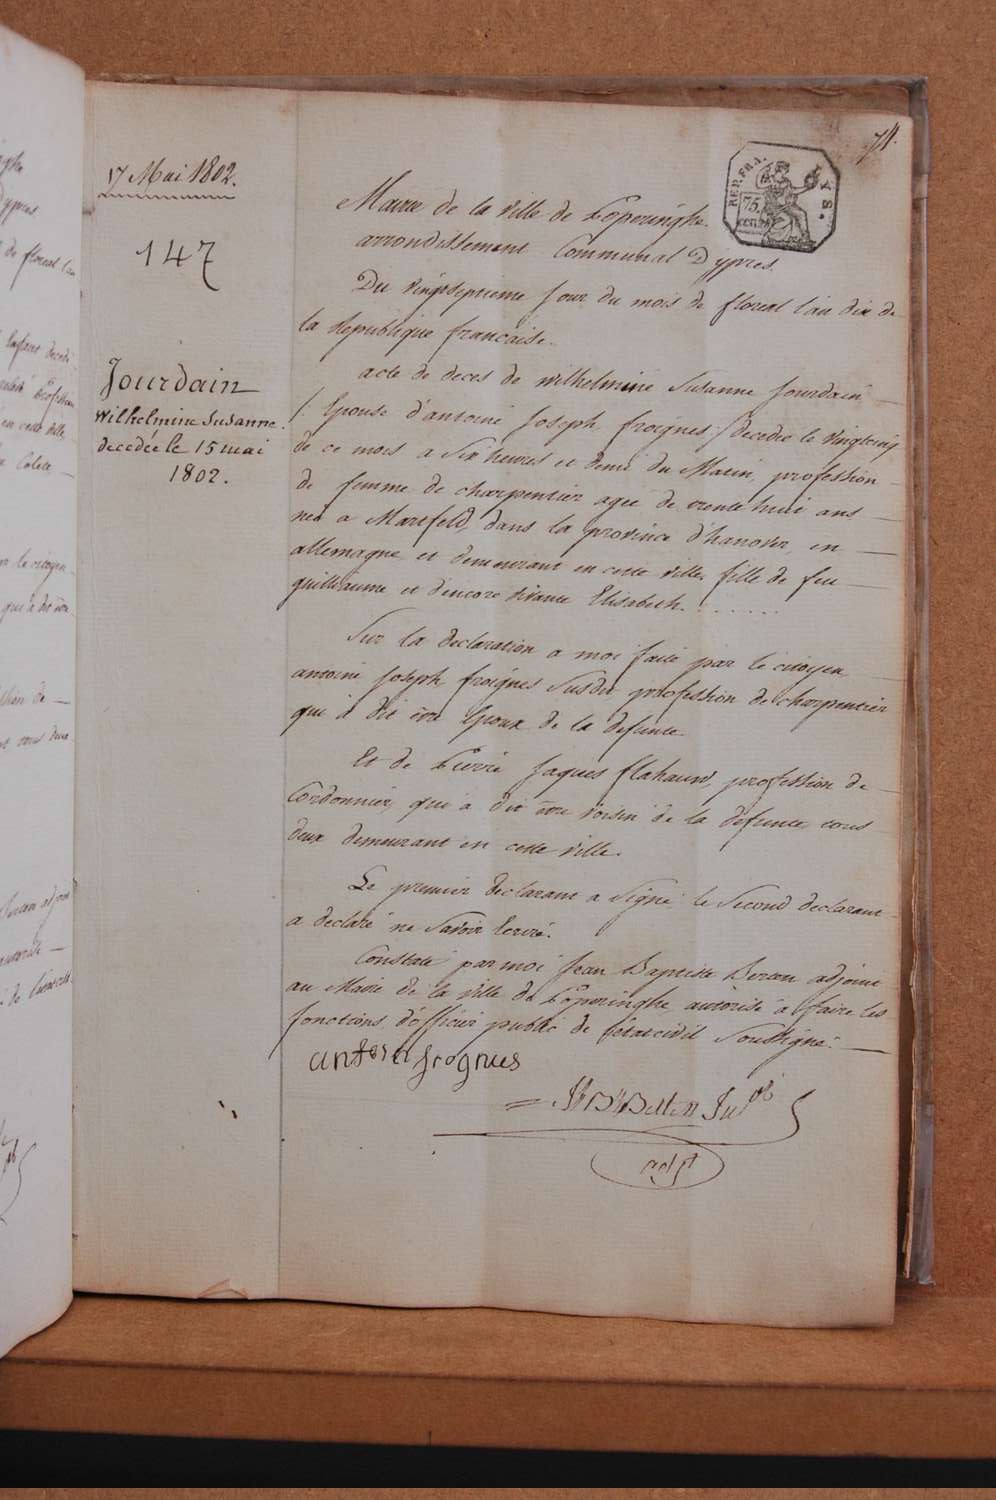 74.
17 Mai 1802.
147
Jourdain
Wilhelmine Susanne.
decedée le 15 mai
1802.
REP. FRA.
75
cent.
LYS.
Mairie de la ville de Poperinghe.
arrondissement Communal D'ypres.
Du vingtseptieme jour du mois de floreal l'an dix de
la Republique francaise.
acte de deces de Wilhelmine Susanne Jourdain,
/: Epouse d'antoine Joseph froignes :/ decedée le vingtcinq
de ce mois a Six heures et demi du Matin, profession
de femme de charpentier agée de trente huit ans
née a Martfeld, dans la province d'hanover, en
allemagne et demeurant en cette ville, fille de feu
guilliaume et d'encore vivante Elisabeth. . . . . . .
Sur la declaration a moi faite par le citoyen
antoine Joseph froignes Susdit profession de charpentier
qui a dit être Epoux de la defunte
Et de Pierre Jaques flahaut, profession de
Cordonnier, qui a dit être voisin de la defunte, tous
deux demeurant en cette ville.
Le premier declarant a Signé, le Second declarant
a declaré ne Savoir Ecrire.
Constaté par moi Jean Baptiste Beron adjoint
au Maire de la ville de Poperinghe, autorisé a faire les
fonctions d'officier public de l'etat civil Soussigné.
frognies
adjt